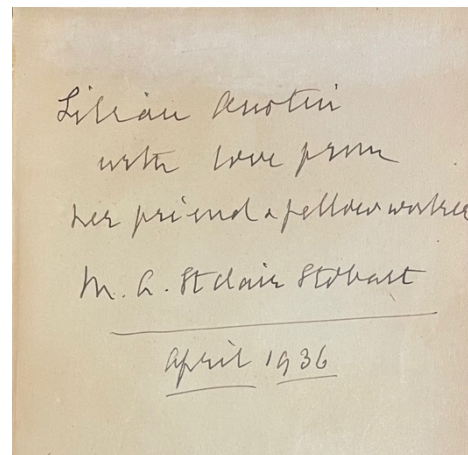 Lilian Austin
with love from
her friend & fellow worker
M. A. St Clair Stobart
April 1936